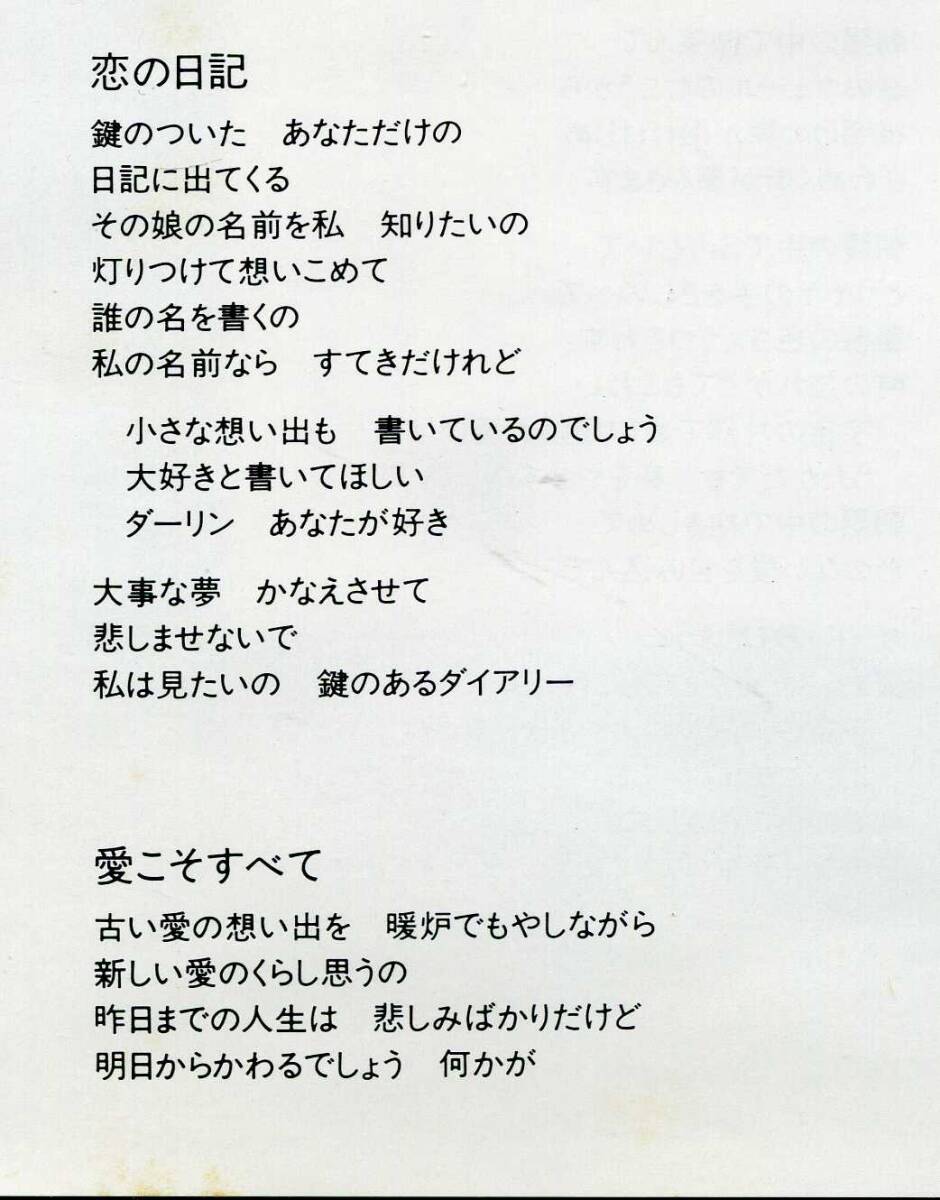 恋の日記
鍵のついた　あなただけの
日記に出てくる
その娘の名前を私　知りたいの
灯りつけて想いこめて
誰の名を書くの
私の名前なら　すてきだけれど
小さな想い出も　書いているのでしょう
大好きと書いてほしい
ダーリン　あなたが好き
大事な夢　かなえさせて
悲しませないで
私は見たいの　鍵のあるダイアリー
愛こそすべて
古い愛の想い出を　暖炉でもやしながら
新しい愛のくらし思うの
昨日までの人生は　悲しみばかりだけど
明日からかわるでしょう　何かが